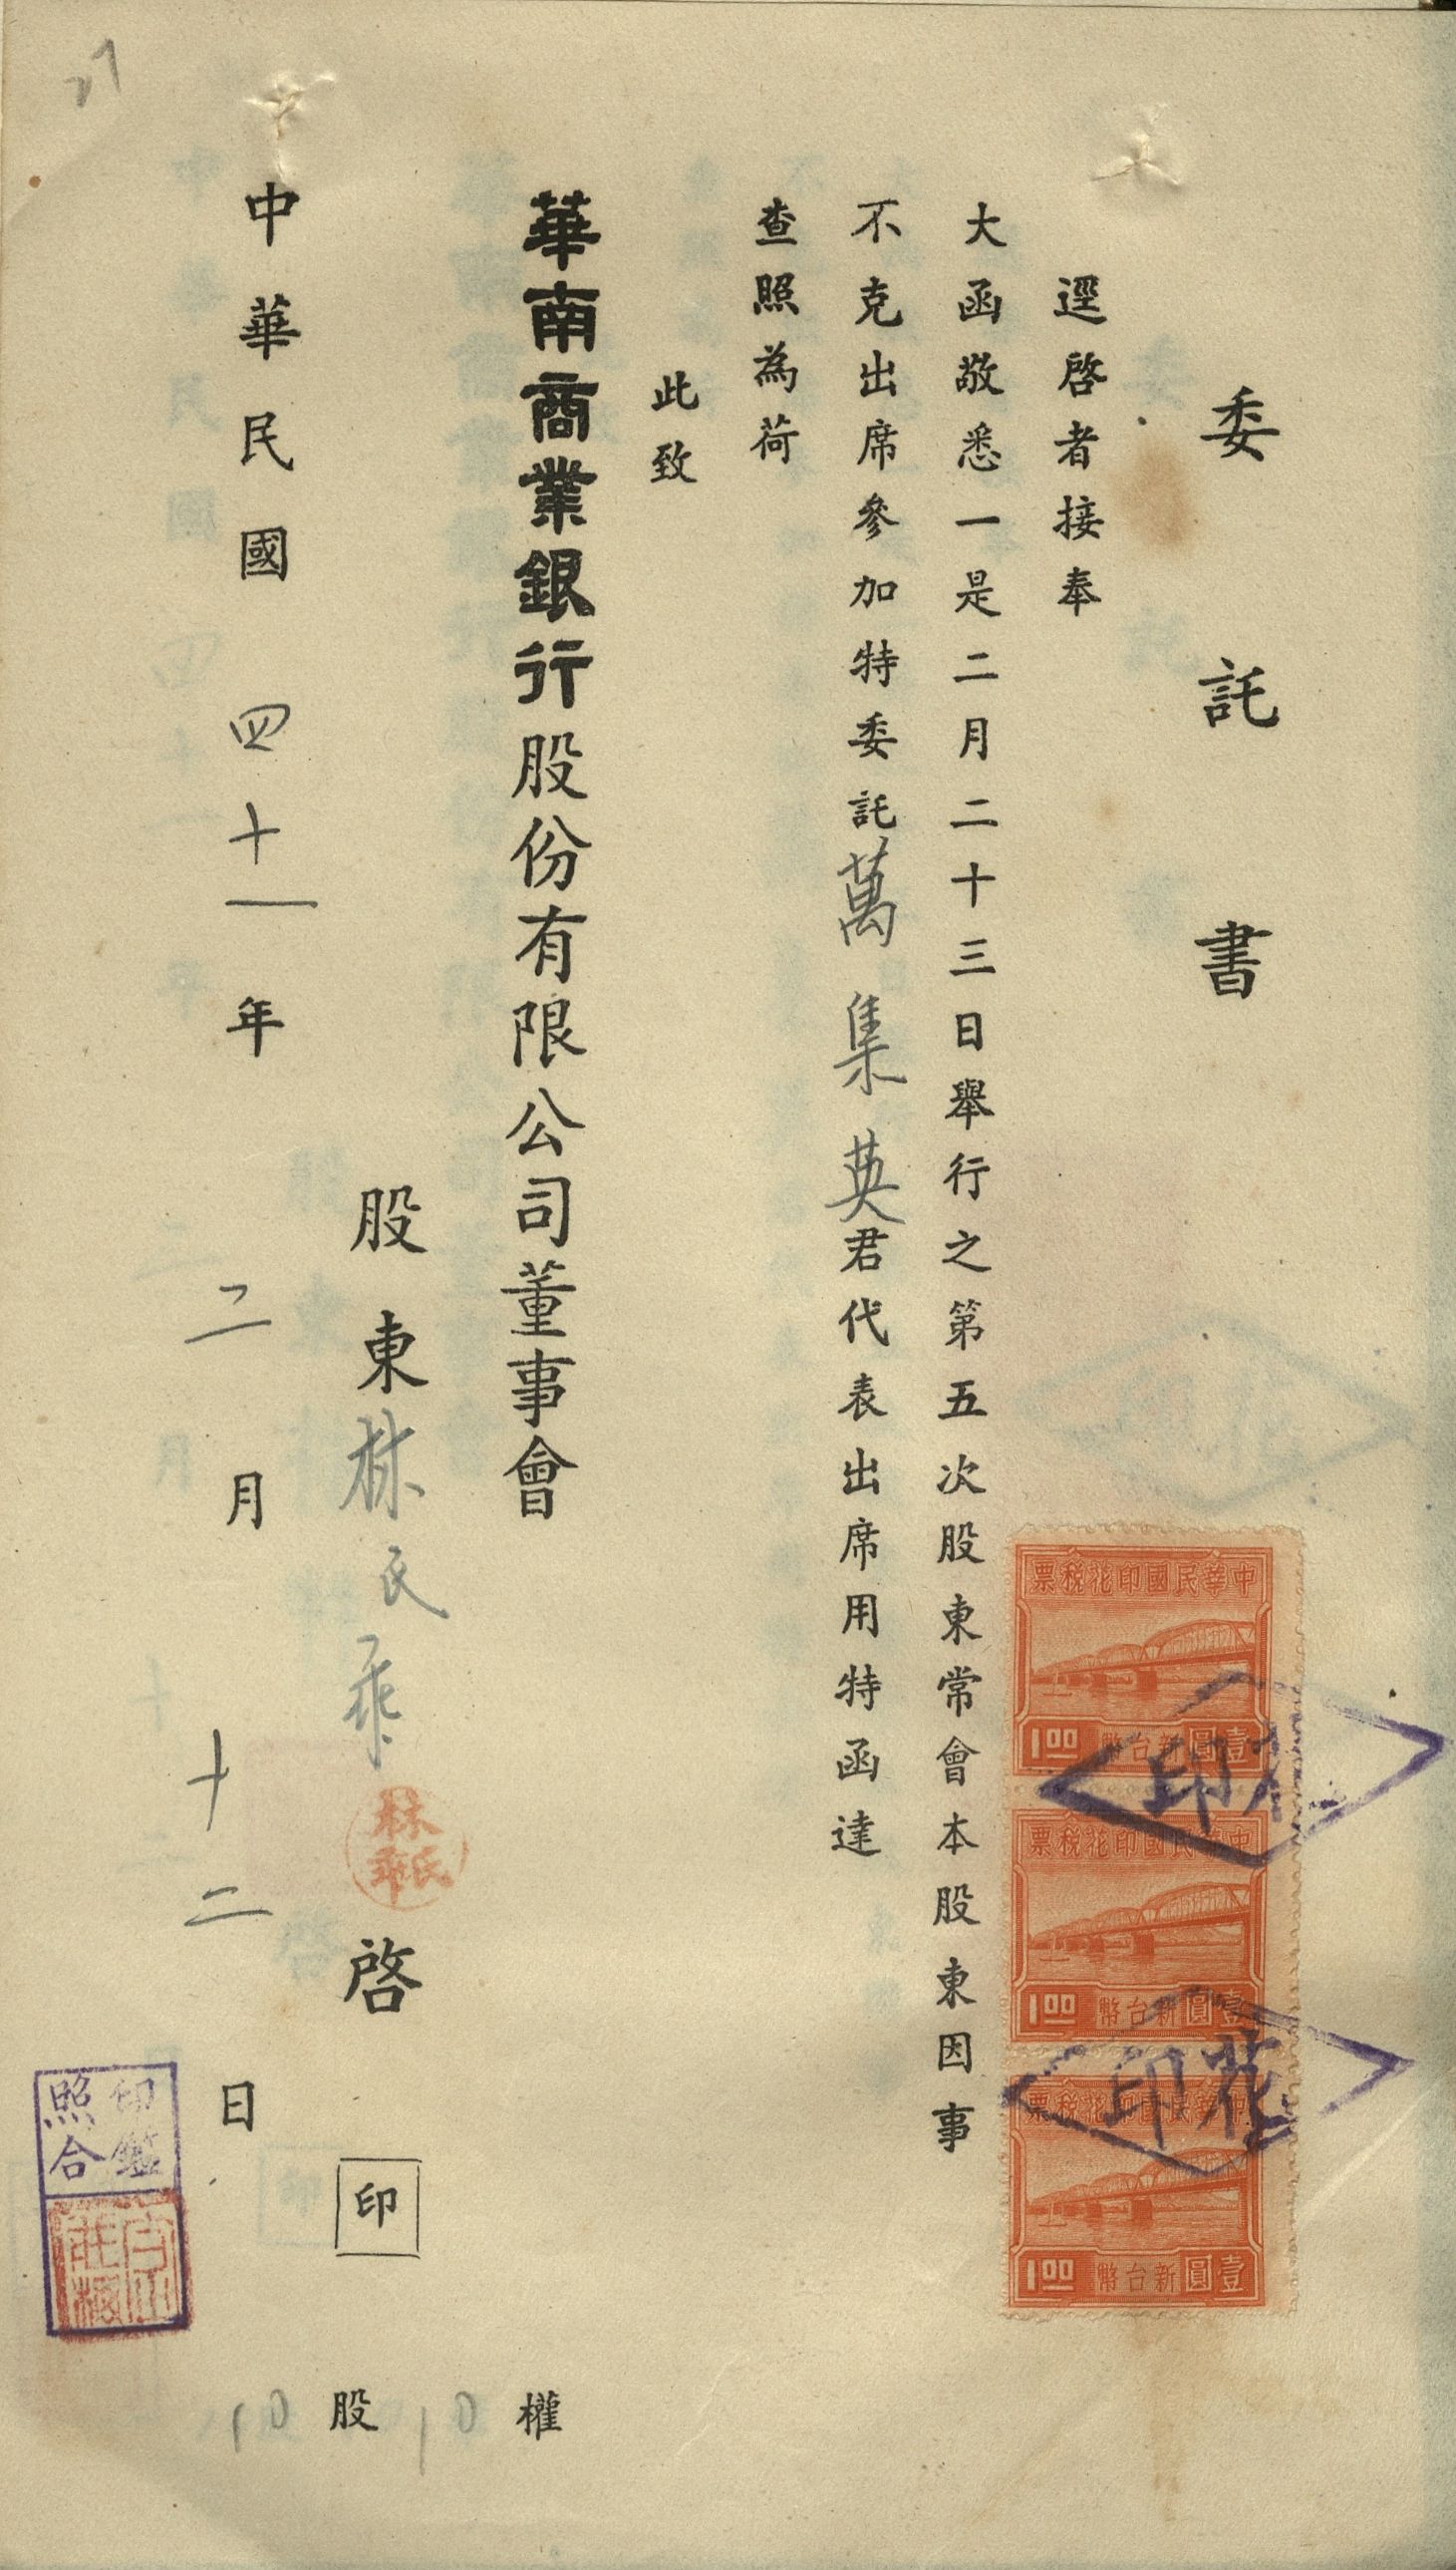 委託書
逕啓者接奉
大函敬悉一是二月二十三日舉行之第五次股東常會本股東因事
不克出席參加特委託萬集英君代表出席用特函達
查照為荷
此致
華南商業銀行股份有限公司董事會
股東林氏乖啓 印
中華民國四十一年二月十二日
10股 10權
27
林氏乖
印鑑照合
中華民國印花稅票
1.00 新台幣壹圓
印花
中華民國印花稅票
1.00 新台幣壹圓
印花
中華民國印花稅票
1.00 新台幣壹圓